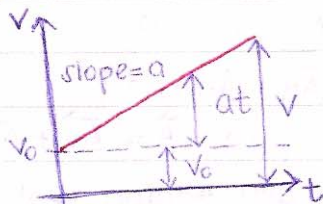 v
slope=a
at
v
v₀
v₀
t